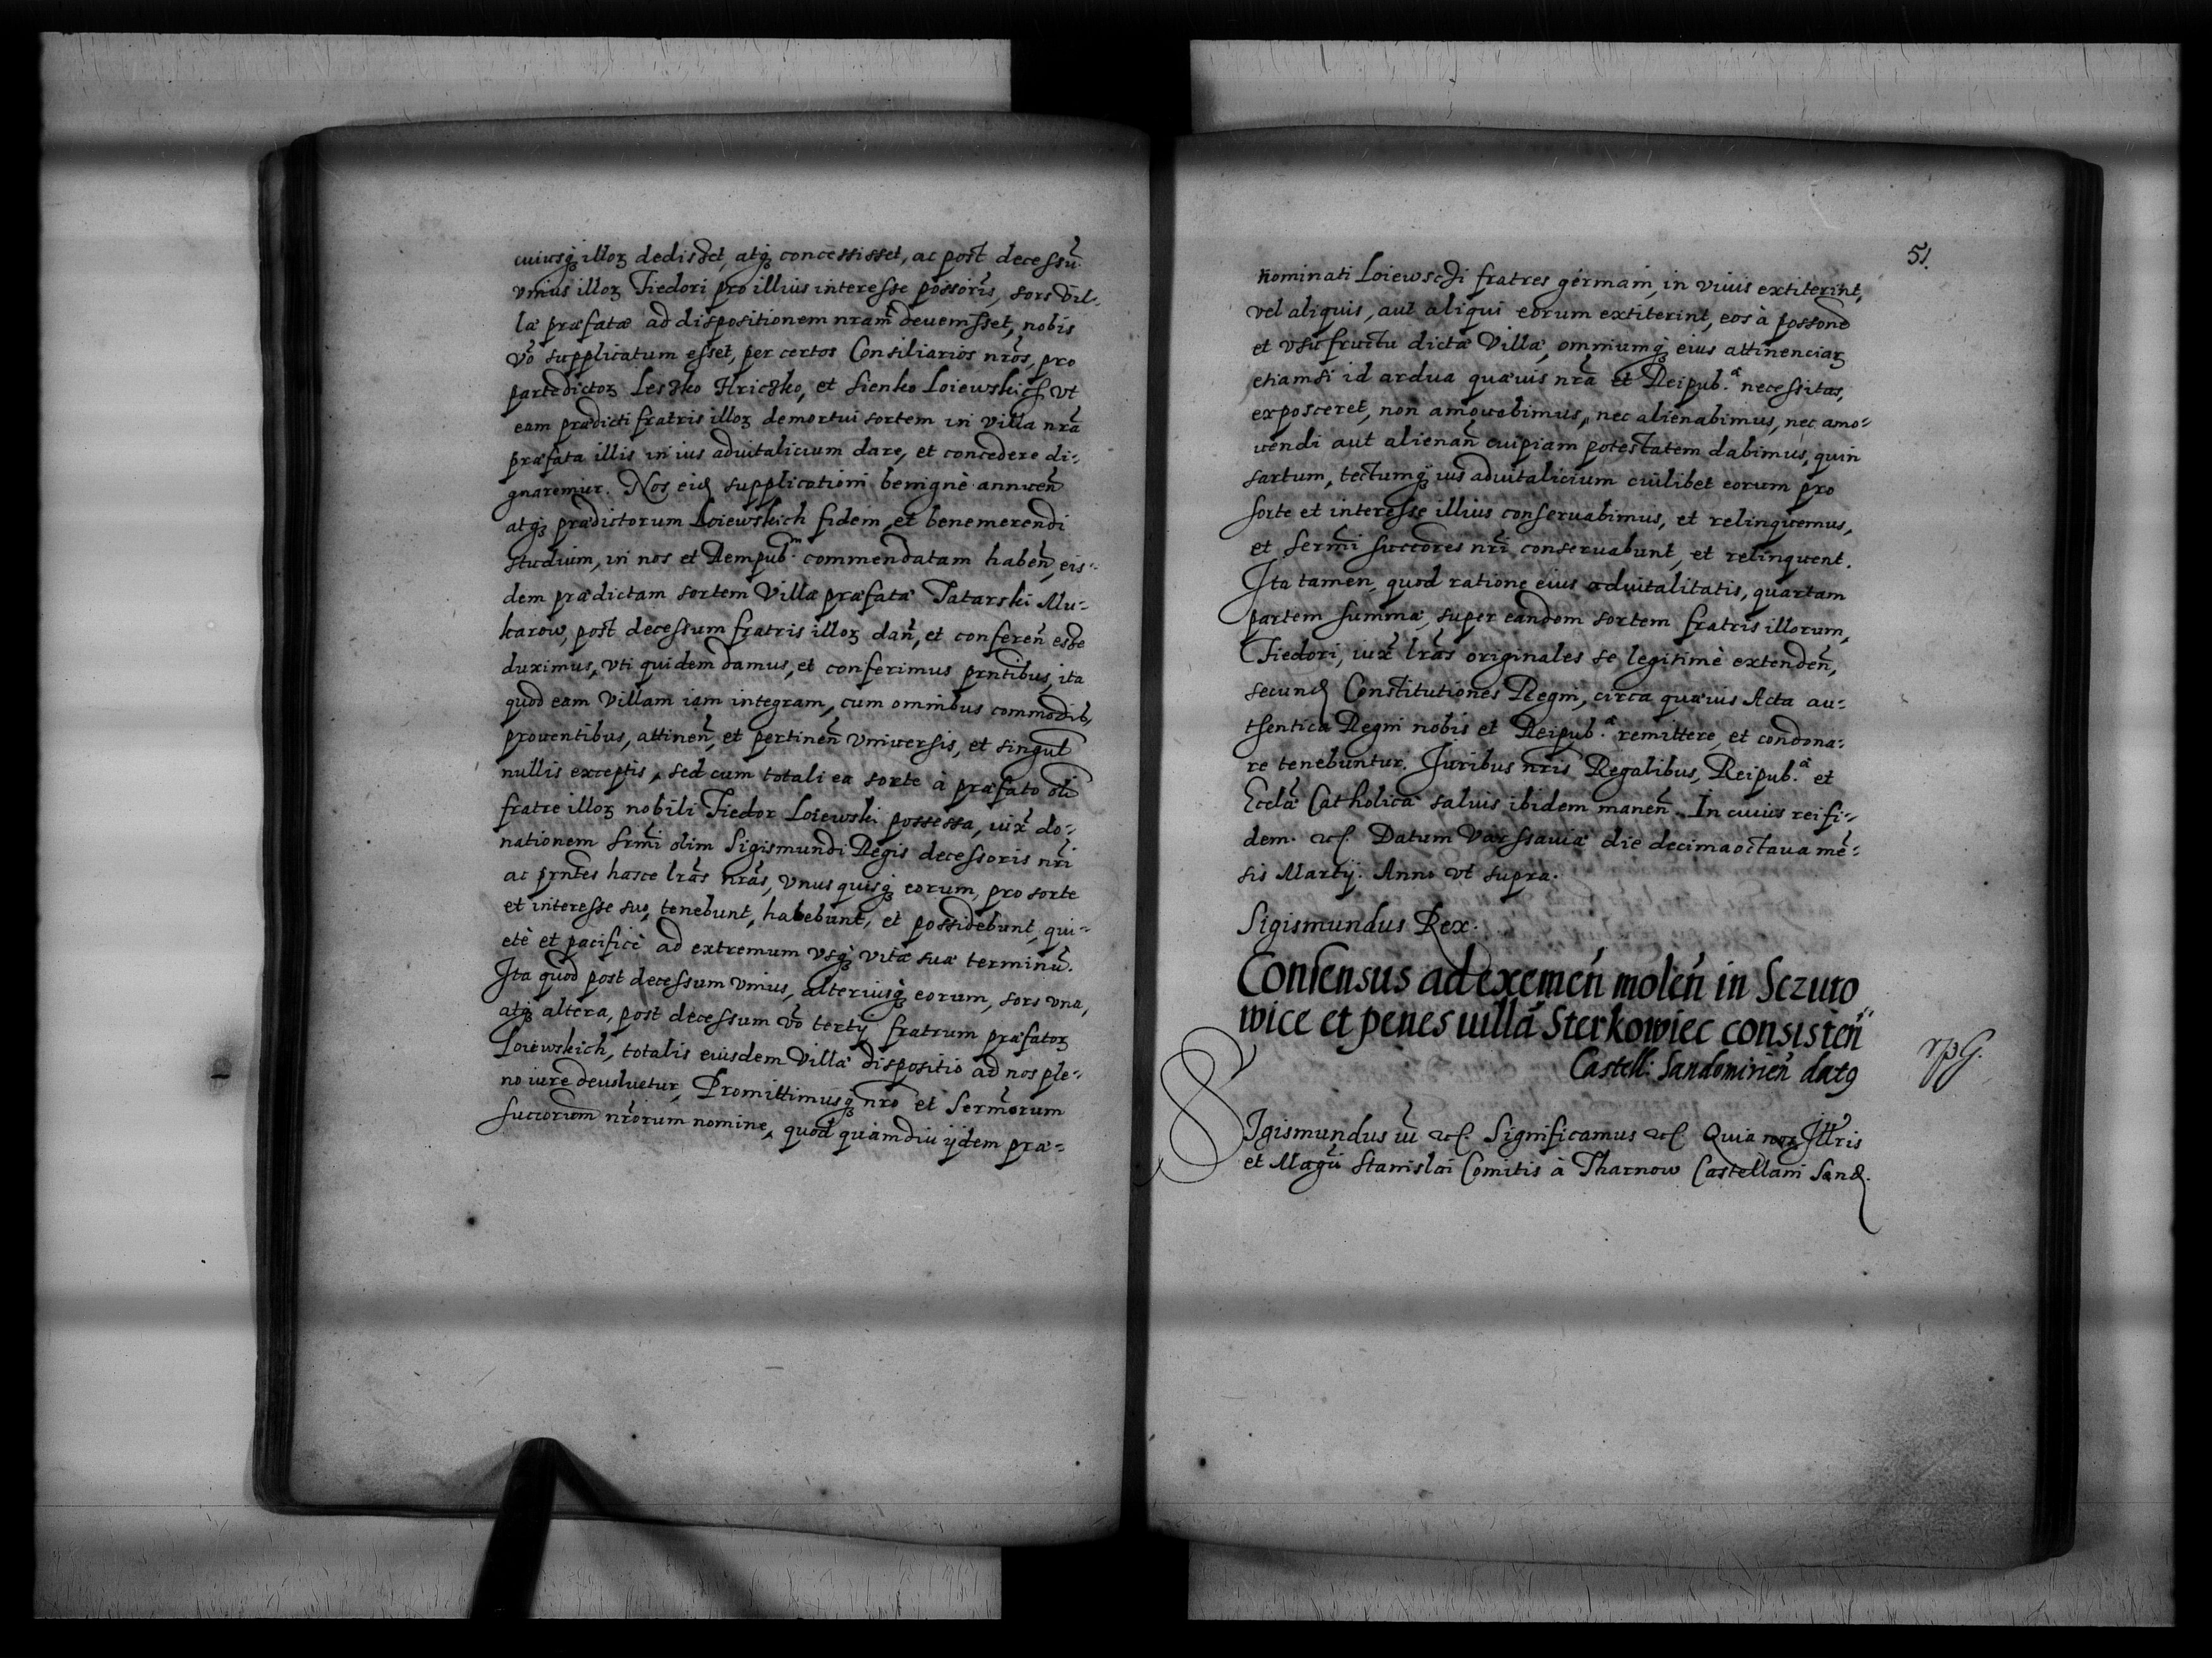 cuiusq₃ illoꝝ dedisset, atq₃ concessisset, ac post decessũ
vnius illoꝝ Fiedori pro illius interesse possoris, sors vil-
læ præfatæ ad dispositionem nram̃ deuenisset, nobis
võ supplicatum esset, per certos Consiliarios nrõs, pro
parte dictoꝝ Leszko Hriczko, et Sienko Loiewskich vt
eam prædicti fratris illoꝝ demortui sortem in villa nrã
præfata illis in ius aduitalicium dare, et concedere di-
gnaremur. Nos eid supplicationi benignè annuen̄
atq₃ prædictorum Loiewskich fidem, et benemerendi
studium, in nos et Rempub.ᵐ commendatam haben̄, eis-
dem prædictam sortem Villæ præfatæ Tatarski Mu-
karow, post decessum fratris illoꝝ dan̄, et conferen̄ esse
duximus, vti quidem damus, et conferimus prñtibus, ita
quod eam Villam iam integram, cum omnibus commodib,
prouentibus, attinen̄, et pertinen̄ vniuersis, et singul
nullis exceptis, sed cum totali ea sorte à præfato oli
fratre illoꝝ nobili Fiedor Loiewski possessa, iux̃ do-
nationem Srm̃i olim Sigismundi Regis decessoris nrĩ
ac prñtes hasce lrãs nrãs, vnusquisq₃ eorum, pro sorte
et interesse suo, tenebunt, habebunt, et possidebunt, qui-
etè et pacificè ad extremum vsq₃ vitæ suæ terminũ.
Ita quod post decessum vnius, alteriusq₃ eorum, sors vna,
atq₃ altera, post decessum võ tertij fratrum præfatoꝝ
Loiewskich, totalis eiusdem Villæ dispositio ad nos ple-
no iure deuoluetur, Promittimusq₃ nrõ et Serm̃orum
succorum nrõrum nomine, quod quamdiu ijdem præ-
51.
nominati Loiewscÿ fratres germani, in viuis extiterint,
vel aliquis, aut aliqui eorum extiterint, eos à possone
et vsufructu dictæ Villæ, omniumq₃ eius attinenciaꝝ
etiamsi id ardua quæuis nrã et Reipub.ᵃᵉ necessitas,
exposceret, non amouebimus, nec alienabimus, nec amo-
uendi aut alienan̄ cuipiam potestatem dabimus, quin
sartum, tectumq₃ ius aduitalicium cuilibet eorum pro
sorte et interesse illius conseruabimus, et relinquemus,
et Serm̃i succores nrĩ conseruabunt, et relinquent.
Ita tamen, quod ratione eius aduitalitatis, quartam
partem summæ, super eandem sortem fratris illorum,
Fiedori, iux̃ lrãs originales se legitimè extenden̄,
secund Constitutiones Regni, circa quæuis Acta au-
thentica Regni nobis et Reipub.ᵃᵉ remittere, et condona-
re tenebuntur. Iuribus nrĩs Regalibus, Reipub.ᵃᵉ et
Eccl̃æ Catholicæ saluis ibidem manen̄. In cuius rei fi-
dem. etc. Datum Varssauiæ die decimaoctaua mẽ-
sis Martij. Anno vt supra.
Sigismundus Rex.
Consensus ad exemen̄ molen̄ in Sczuto
wice et penes uillã Sterkowiec consisten̄
Castell: Sandomirien̄ datꝰ
Sigismundus iii etc. Significamus etc. Quia nos Illr̃is
et Magci Stanislai Comitis à Tharnow Castellani Sand.